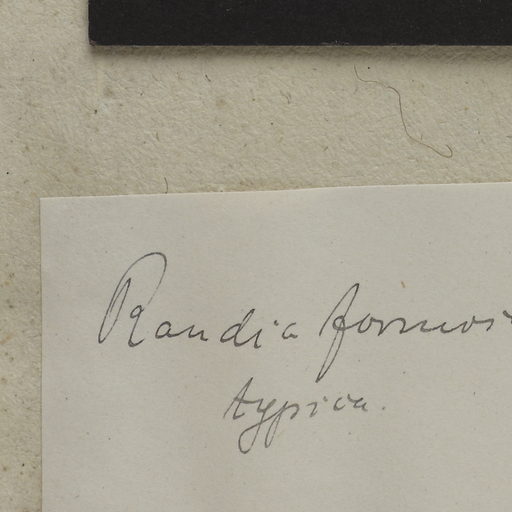 Randia formos
typica.